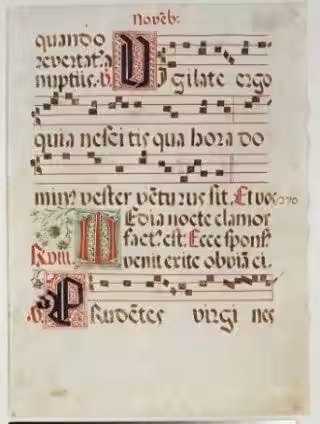 Novēb:
quando
revertat. a
nuptiis. ℟.
Vigilate ergo
quia nescitis qua hora do
min⁹ vester vēturus sit. Et vos
Media nocte clamor
fact⁹. est. Ecce spons⁹.
venit exite obviā ei.
℟. Prudētes virgines